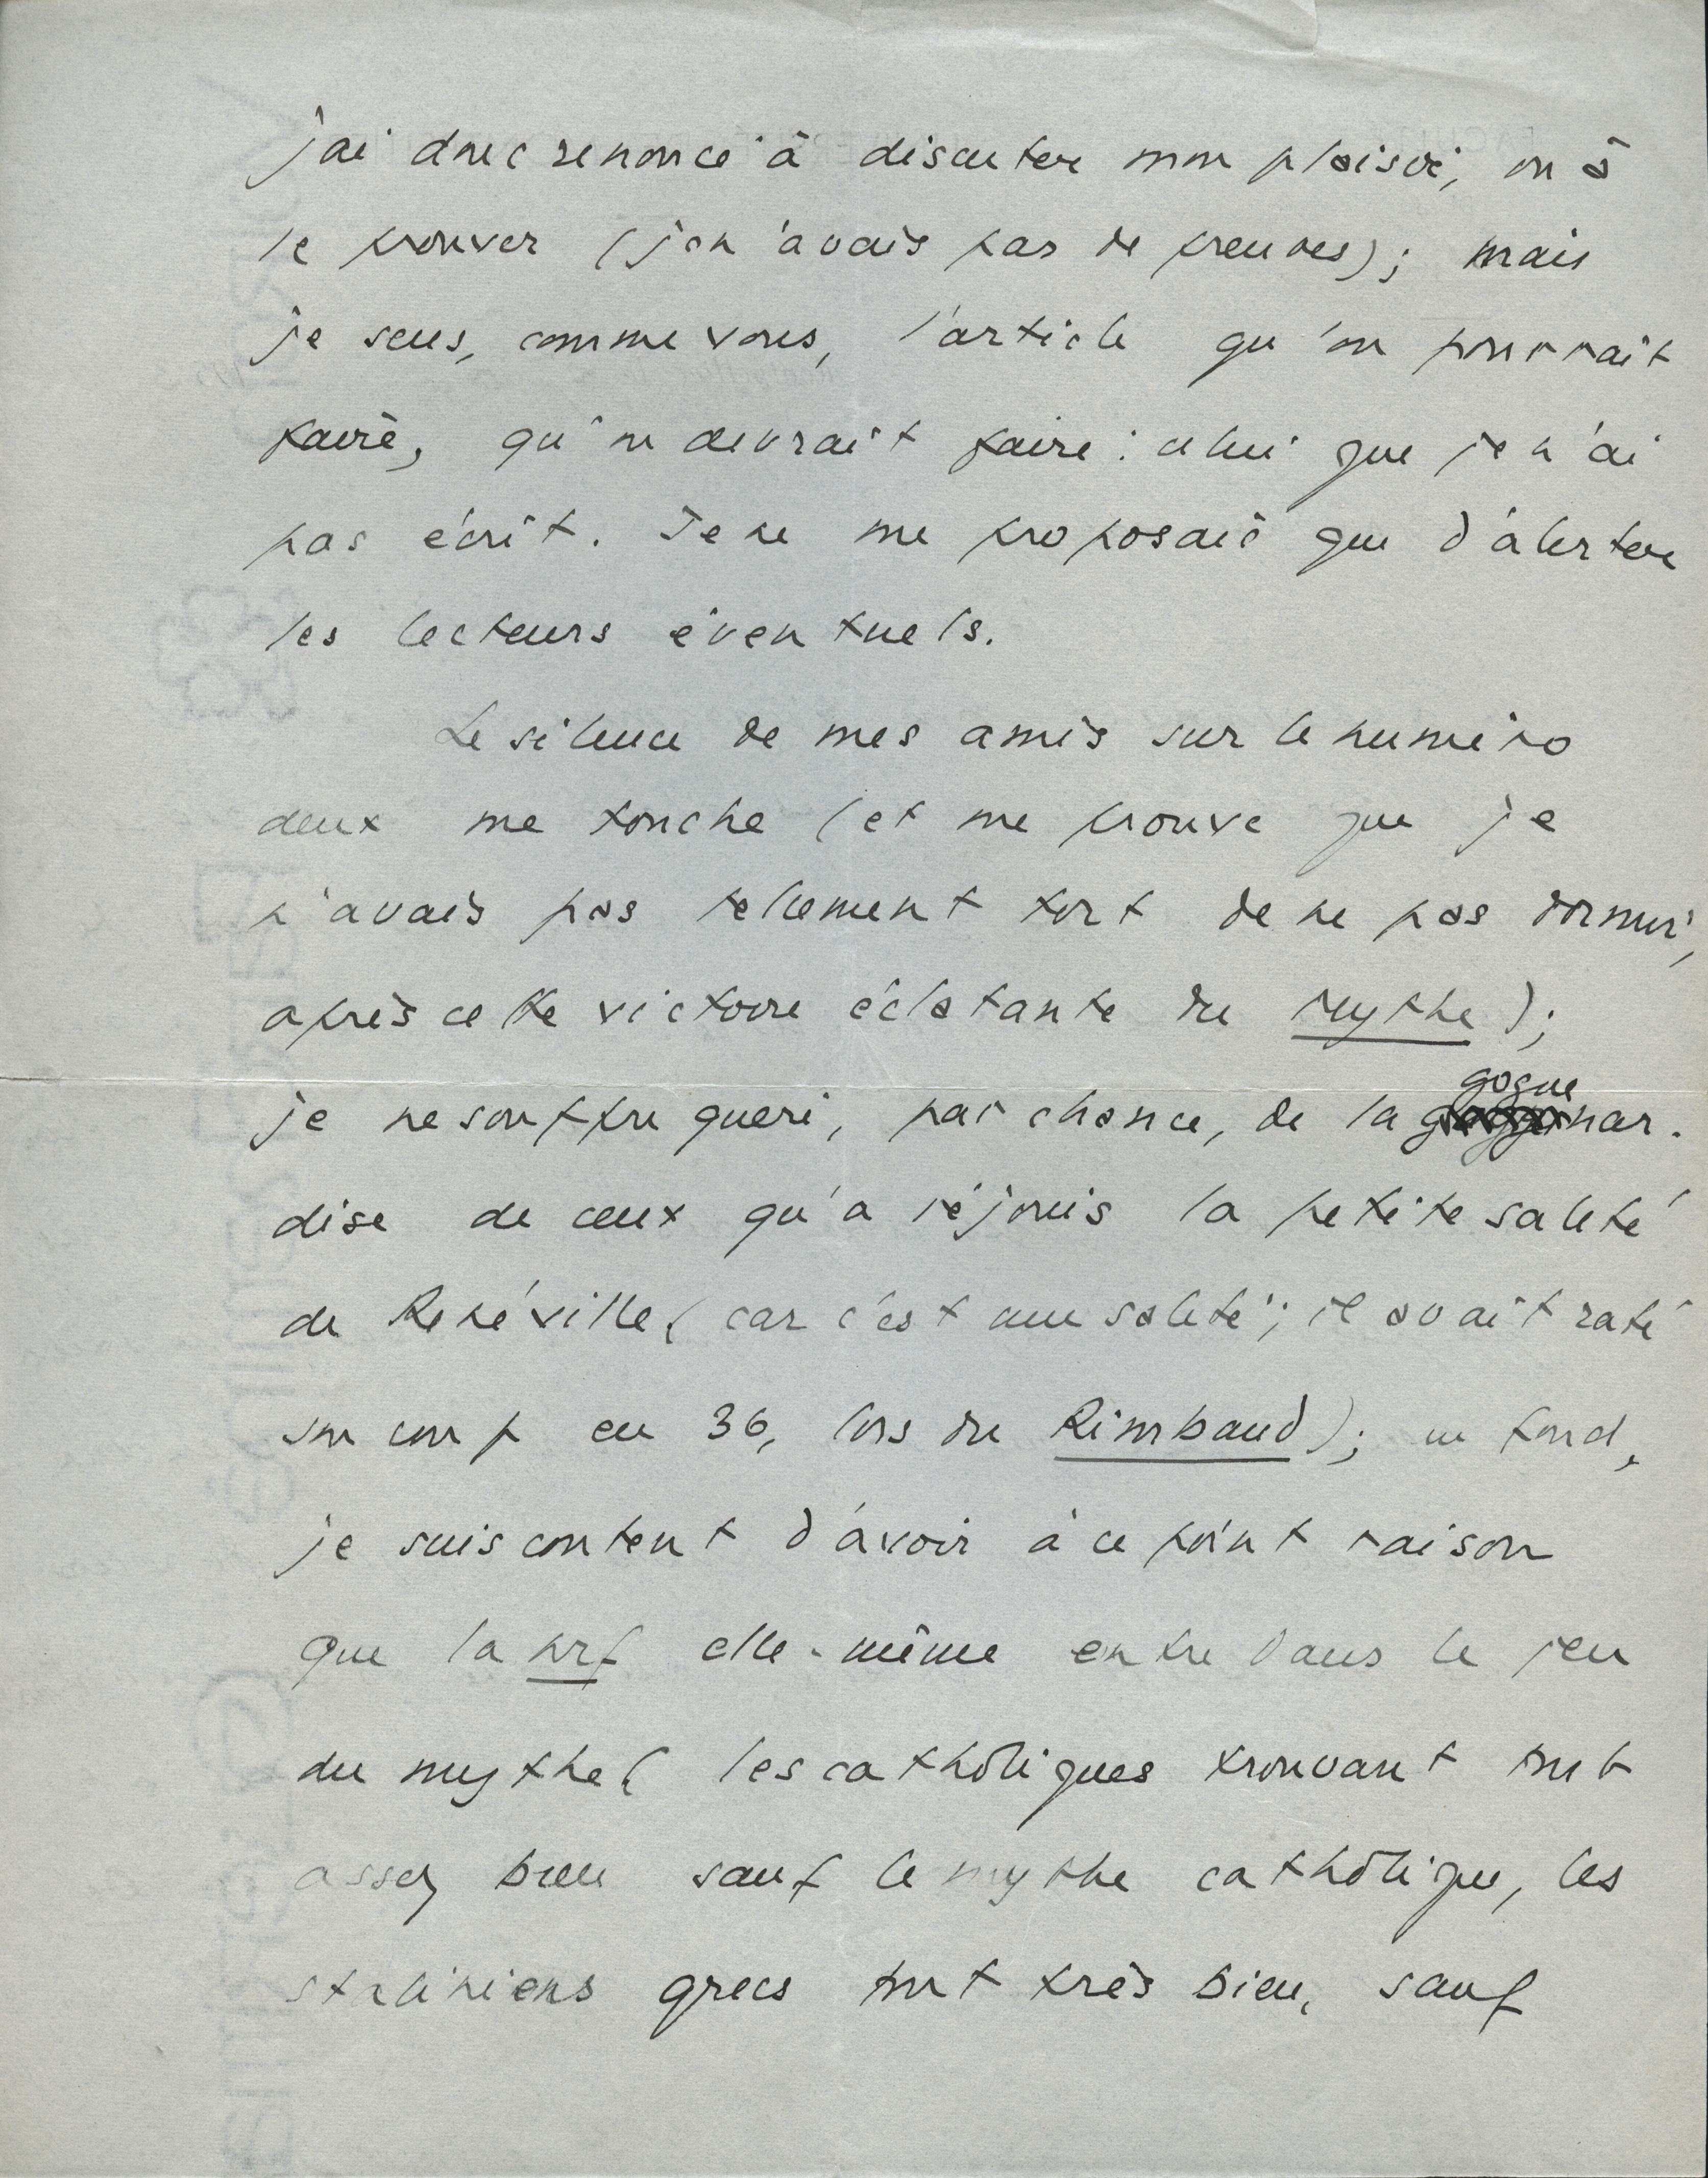 j'ai donc renoncé à discuter mon plaisir, ou à
le prouver (je n'avais pas de preuves) ; mais
je sens, comme vous, l'article qu'on pourrait
faire, qu'on devrait faire : celui que je n'ai
pas écrit. Je ne me proposais que d'alerter
les lecteurs éventuels.
Le silence de mes amis sur le numéro
deux me touche (et me prouve que je
n'avais pas tellement tort de ne pas dormir,
après cette victoire éclatante du Mythe) ;
je ne souffre guère, par chance, de la goguenar-
dise de ceux qu'a réjouis la petite saleté
de Renéville (car c'est une saleté ; il avait raté
son coup en 36, lors du Rimbaud) ; au fond,
je suis content d'avoir à ce point raison
que la nrf elle-même entre dans le jeu
du mythe (les catholiques trouvant tout
assez bien sauf le mythe catholique, les
staliniens grecs tout très bien, sauf